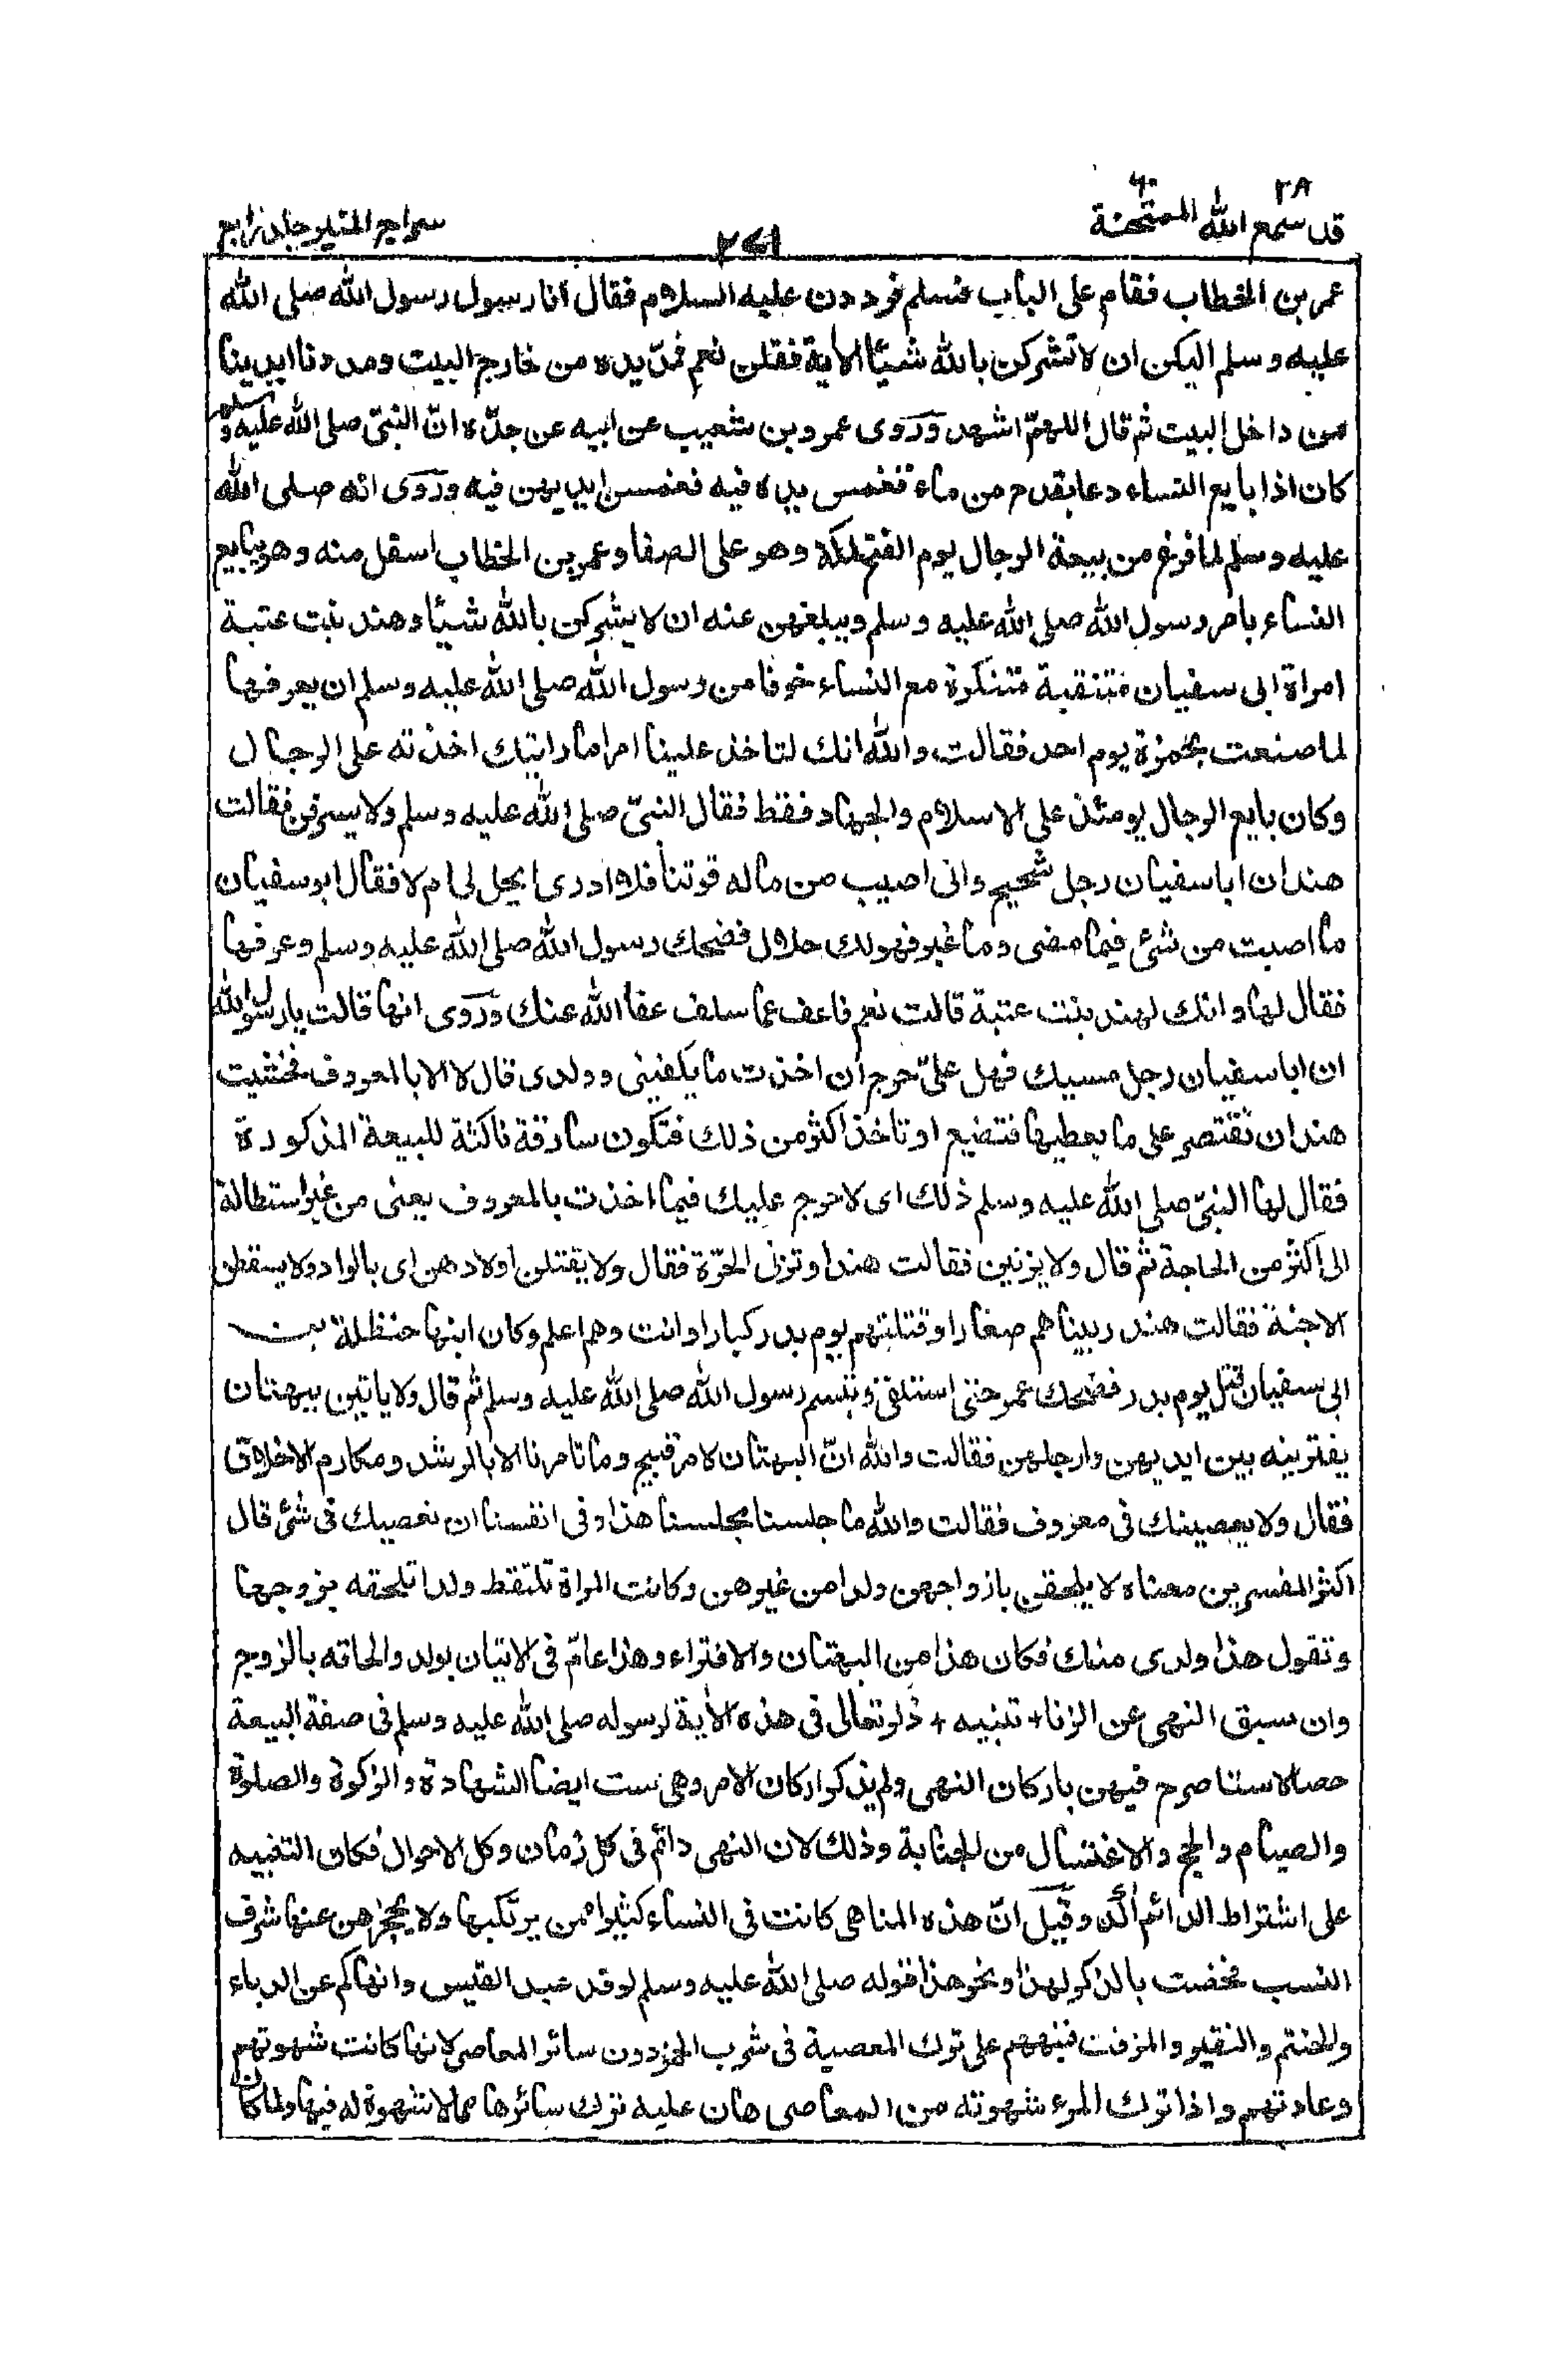 ٢٨ قد سمع الله الممتحنة ٦٠
٢٧١
سراج المنير جلد رابع
عمر بن الخطاب فقام على الباب فسلم فرددن عليه السلام فقال انا رسول رسول الله صلى الله
عليه وسلم اليكن ان لا تشركن بالله شيئا الاية فقلن نعم فمدّ يده من خارج البيت ومددنا ايدينا
من داخل البيت ثم قال اللهمّ اشهد وروى عمرو بن شعيب عن ابيه عن جدّه انّ النبيّ صلى الله عليه وسلم
كان اذا بايع النساء دعا بقدح من ماء فغمس يده فيه فغمسن ايديهن فيه وروى انه صلى الله
عليه وسلم لما فرغ من بيعة الرجال يوم الفتح لمكة وهو على الصفا وعمر بن الخطاب اسفل منه وهو يبايع
النساء بامر رسول الله صلى الله عليه وسلم ويبلغهن عنه ان لا يشركن بالله شيئا وهند بنت عتبة
امراة ابى سفيان متنقبة متنكرة مع النساء خوفا من رسول الله صلى الله عليه وسلم ان يعرفها
لما صنعت بحمزة يوم احد فقالت والله انك لتاخذ علينا امرا ما رايتك اخذته على الرجال
وكان بايع الرجال يومئذ على الاسلام والجهاد فقط فقال النبيّ صلى الله عليه وسلم ولا يسرقن فقالت
هند ان ابا سفيان رجل شحيح وانى اصيب من ماله قوتنا فلا ادرى ايحل لى ام لا فقال ابو سفيان
ما اصبت من شئ فيما مضى وما غبر فهو لك حلال فضحك رسول الله صلى الله عليه وسلم وعرفها
فقال لها وانك لهند بنت عتبة قالت نعم فاعف عما سلف عفا الله عنك وروى انها قالت يا رسول الله
ان ابا سفيان رجل مسيك فهل علىّ حرج ان اخذت ما يكفينى وولدى قال لا الا بالمعروف فخشيت
هند ان تقتصر على ما يعطيها فتضيع او تاخذ اكثر من ذلك فتكون سارقة ناكثة للبيعة المذكورة
فقال لها النبيّ صلى الله عليه وسلم ذلك اى لا حرج عليك فيما اخذت بالمعروف يعنى من غير استطالة
الى اكثر من الحاجة ثم قال ولا يزنين فقالت هند او تزنى الحرّة فقال ولا يقتلن اولادهن اى بالواد ولا يسقطن
الاجنة فقالت هند ربيناهم صغارا وقتلتهم يوم بدر كبارا وانت وهم اعلم وكان ابنها حنظلة بن
ابى سفيان قتل يوم بدر فضحك عمر حتى استلقى وتبسم رسول الله صلى الله عليه وسلم ثم قال ولا ياتين ببهتان
يفترينه بين ايديهن وارجلهن فقالت والله انّ البهتان لامر قبيح وما تامرنا الا بالرشد ومكارم الاخلاق
فقال ولا يعصينك فى معروف فقالت والله ما جلسنا مجلسنا هذا وفى انفسنا ان نعصيك فى شئ قال
اكثر المفسرين معناه لا يلحقن بازواجهن ولدا من غيرهن وكانت المراة تلتقط ولدا تلحقه بزوجها
وتقول هذا ولدى منك فكان هذا من البهتان والافتراء وهذا عامّ فى الاتيان بولد والحاقه بالزوج
وان سبق النهى عن الزنا + تنبيه + ذكر تعالى فى هذه الاية لرسوله صلى الله عليه وسلم فى صفة البيعة
خصالا ستا صرح فيهن باركان النهى ولم يذكر اركان الامر وهى ست ايضا الشهادة والزكوة والصلوة
والصيام والحج والاغتسال من الجنابة وذلك لان النهى دائم فى كل زمان وكل الاحوال فكان التنبيه
على اشتراط الدائم اٰكد وقيل انّ هذه المناهى كانت فى النساء كثير من يرتكبها ولا يحجزهن عنها شرف
النسب فخصت بالذكر لهذا ونحو هذا قوله صلى الله عليه وسلم لوفد عبد القيس وانهاكم عن الدباء
والحنتم والنقير والمزفت فنبههم على ترك المعصية فى شرب الخمر دون سائر المعاصى لانها كانت شهوتهم
وعادتهم واذا ترك المرء شهوته من المعاصى هان عليه ترك سائرها مما لا شهوة له فيها ولما كان